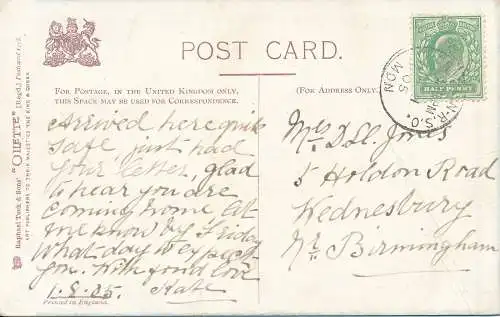 POST CARD.
FOR POSTAGE, IN THE UNITED KINGDOM ONLY,
THIS SPACE MAY BE USED FOR CORRESPONDENCE.
(FOR ADDRESS ONLY.)
HALF PENNY
N.R.S.O.
MON
Raphael Tuck & Sons' "OILETTE" [Regd.] Postcard
ART PUBLISHERS TO THEIR MAJESTIES THE KING & QUEEN.
Arrived here quite
safe, just had
your letter, glad
to hear you are
coming home let
me know by Friday
what day to expect
you. With fond love
1.8.05. Kate
Printed in England.
Jones
5 Holdon Road
Wednesbury
Nr. Birmingham